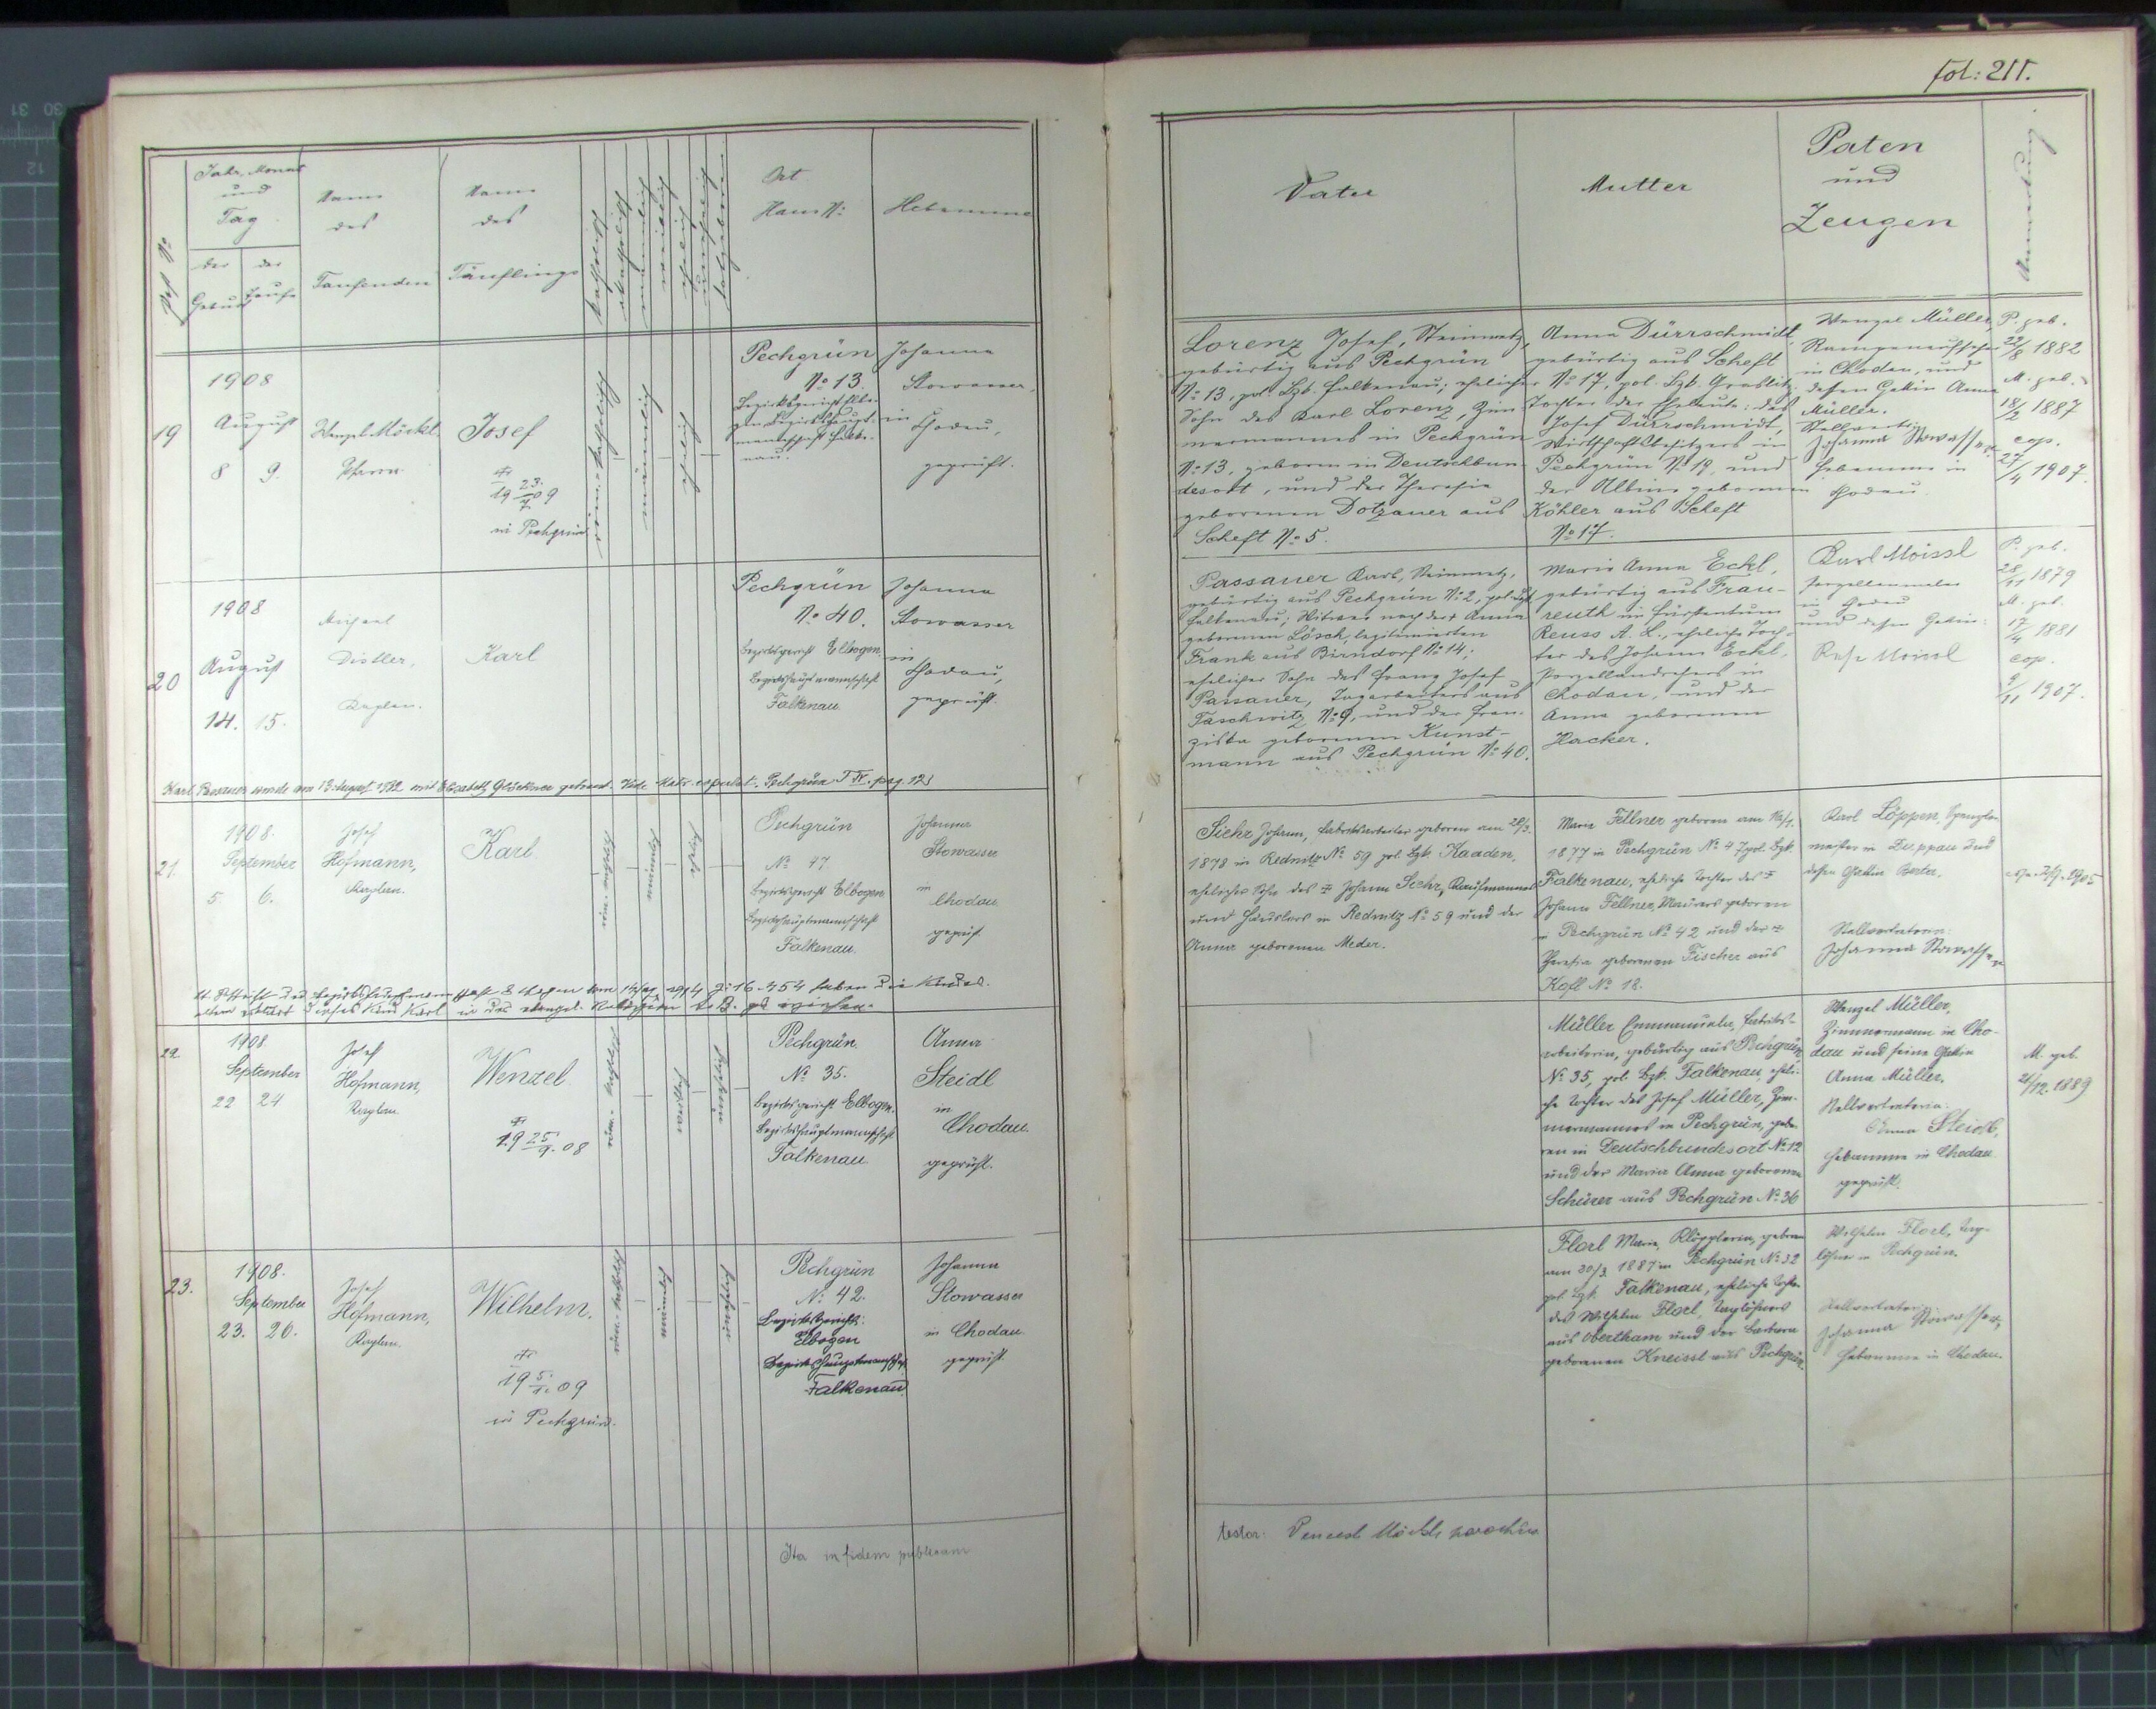 fol: 211.
Post No
Jahr, Monat
und
Tag
der Geburt
der Taufe
Name
des
Taufenden
Name
des
Täuflings
katholisch
männlich
weiblich
ehelich
unehelich
Ort
Haus No:
Hebamme
Vater
Mutter
Paten
und
Zeugen
Anmerkung
19
1908
August
8 9.
Wenzel Möckl.
Pfarrer
Josef
† 19 23./7 09
in Pechgrün
röm.-katholisch
männlich
ehelich
Pechgrün
No 13.
Bezirksgericht Elbo-
gen Bezirkshaupt-
mannschaft Falke-
nau.
Johanna
Stowasser,
in
Chodau,
geprüft.
Lorenz Josef, Steinmetz,
gebürtig aus Pechgrün
No 13, pol. Bzk. Falkenau; ehelicher
Sohn des Karl Lorenz, Zim-
mermannes in Pechgrün
No 13, geboren in Deutschbun-
desort, und der Theresia
geborenen Dotzauer aus
Scheft No 5.
Anna Dürrschmidt,
gebürtig aus Scheft
No 17, pol. Bzk. Graslitz
Tochter der Eheleute: des
Josef Dürrschmidt,
Wirtschaftsbesitzers in
Pechgrün No 19, und
der Albine geborenen
Köhler aus Scheft
No 17.
Wenzel Müller,
in Chodau, und
dessen Gattin Anna
Müller.
Johanna Stowasser
Hebamme in
Chodau.
P. geb.
22/8 1882
M. geb.
18/2 1887
cop.
27/4 1907.
20
1908
August
14. 15.
Michael
Distler,
Kaplan.
Karl
Pechgrün
No 40.
Bezirksgericht Elbogen.
Bezirkshauptmannschaft
Falkenau.
Johanna
Stowasser
in
Chodau,
geprüft.
Passauer Karl, Steinmetz,
gebürtig aus Pechgrün No 2, pol. Bzk.
Falkenau; Witwer nach der † Anna
geborenen Lösch, legitimierten
Frank aus Birndorf No 14;
ehelicher Sohn des Franz Josef
Passauer, Tagarbeiters aus
Taschwitz No 9, und der Fran-
ziska geborenen Kunst-
mann aus Pechgrün No 40.
Maria Anna Eckl,
gebürtig aus Frau-
reuth in Fürstentum
Reuss A. L., eheliche Toch-
ter des Johann Eckl,
Porzellandrehers in
Chodau, und der
Anna geborenen
Hacker.
Karl Moissl
Porzellanmaler
in Chodau
und dessen Gattin:
Rosa Moissl
P. geb.
28/11 1879
M. geb.
17/4 1881
cop.
9/11 1907.
Karl Passauer wurde am 13. August 1932 mit Elisabeth Glöckner getraut. Vide Matr. copulat. Pechgrün T IV. pag. 123
21.
1908.
September
5 6.
Josef
Hofmann,
Kaplan.
Karl
männlich
ehelich
Pechgrün
No 47
Bezirksgericht Elbogen
Bezirkshauptmannschaft
Falkenau.
Johanna
Stowasser
in
Chodau
geprüft
Siehr Johann, Fabriksarbeiter geboren am 28/3.
1878 in Rednitz No 59 pol. Bzk. Kaaden,
ehelicher Sohn des † Johann Siehr, Kaufmannes
und Häuslers in Rednitz No 59 und der
Anna geborenen Meder.
Maria Fellner geboren am
1877 in Pechgrün No 47 pol. Bzk.
Falkenau, eheliche Tochter des †
Johann Fellner, Maurers geboren
in Pechgrün No 42 und der †
Theresia geborenen Fischer aus
Kösl No 18.
Karl Löppen, Spengler-
meister in Duppau und
dessen Gattin Berta.
Stellvertreterin:
Johanna Stowasser
22.
1908.
September
22 24
Josef
Hofmann,
Kaplan.
Wenzel.
† 19 25/9. 08
Pechgrün.
No 35.
Bezirksgericht Elbogen.
Bezirkshauptmannschaft
Falkenau.
Anna
Steidl
in
Chodau.
geprüft.
Müller Emmanuela, Fabriks-
arbeiterin, gebürtig aus Pechgrün
No 35, pol. Bzk. Falkenau, eheli-
che Tochter des Josef Müller, Zim-
mermannes in Pechgrün, gebo-
ren in Deutschbundesort No 12
und der Maria Anna geborenen
Schürer aus Pechgrün No 36
Wenzel Müller,
Zimmermann in Cho-
dau und seine Gattin
Anna Müller.
Stellvertreterin:
Anna Steidl,
Hebamme in Chodau
geprüft.
M. geb.
21/12. 1889
23.
1908.
September
23. 26.
Josef
Hofmann,
Kaplan.
Wilhelm.
† 19 5./1. 09
in Pechgrün.
männlich
unehelich
Pechgrün
No 42.
Bezirksgericht:
Elbogen
Bezirkshauptmannschaft
Falkenau.
Johanna
Stowasser
in Chodau.
geprüft
Florl Maria, Klöpplerin, geboren
am 30/3. 1887 in Pechgrün No 32
pol. Bzk. Falkenau, eheliche Tochter
des Wilhelm Florl, Taglöhners
aus Obertham und der Barbara
geborenen Kneissl aus Pechgrün.
Wilhelm Florl, Tag-
löhner in Pechgrün.
Stellvertreterin
Johanna Stowasser,
Hebamme in Chodau.
Ita in fidem publicam
testor: Vencesl. Möckl, parochus